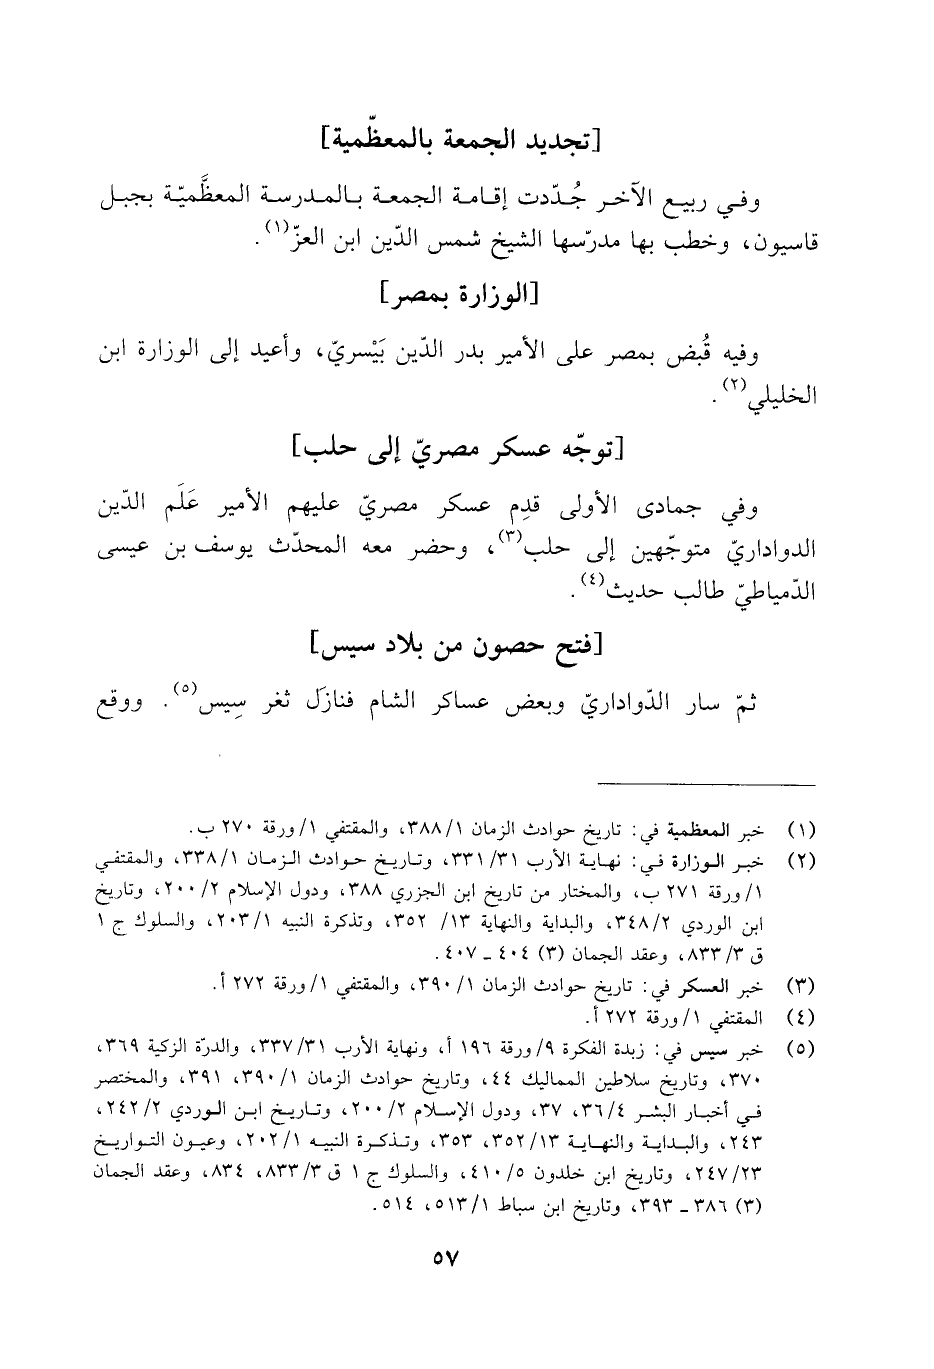 [تجديد الجمعة بالمعظّمية]
وفي ربيع الآخر جُدّدت إقامة الجمعة بالمدرسة المعظَّميّة بجبل
قاسيون، وخطب بها مدرّسها الشيخ شمس الدّين ابن العزّ(١).
[الوزارة بمصر]
وفيه قُبض بمصر على الأمير بدر الدّين بَيْسريّ، وأعيد إلى الوزارة ابن
الخليلي(٢).
[توجّه عسكر مصريّ إلى حلب]
وفي جمادى الأولى قدِم عسكر مصريّ عليهم الأمير عَلَم الدّين
الدواداريّ متوجّهين إلى حلب(٣)، وحضر معه المحدّث يوسف بن عيسى
الدّمياطيّ طالب حديث(٤).
[فتح حصون من بلاد سيس]
ثمّ سار الدّواداريّ وبعض عساكر الشام فنازَل ثغر سِيس(٥). ووقع
(١) خبر المعظمية في: تاريخ حوادث الزمان ١/ ٣٨٨، والمقتفي ١/ ورقة ٢٧٠ ب.
(٢) خبر الوزارة في: نهاية الأرب ٣١/ ٣٣١، وتاريخ حوادث الزمان ١/ ٣٣٨، والمقتفي
١/ ورقة ٢٧١ ب، والمختار من تاريخ ابن الجزري ٣٨٨، ودول الإسلام ٢/ ٢٠٠، وتاريخ
ابن الوردي ٢/ ٣٤٨، والبداية والنهاية ١٣/ ٣٥٢، وتذكرة النبيه ١/ ٢٠٣، والسلوك ج ١
ق ٣/ ٨٣٣، وعقد الجمان (٣) ٤٠٤ ـ ٤٠٧.
(٣) خبر العسكر في: تاريخ حوادث الزمان ١/ ٣٩٠، والمقتفي ١/ ورقة ٢٧٢ أ.
(٤) المقتفي ١/ ورقة ٢٧٢ أ.
(٥) خبر سيس في: زبدة الفكرة ٩/ ورقة ١٩٦ أ، ونهاية الأرب ٣١/ ٣٣٧، والدرّة الزكية ٣٦٩،
٣٧٠، وتاريخ سلاطين المماليك ٤٤، وتاريخ حوادث الزمان ١/ ٣٩٠، ٣٩١، والمختصر
في أخبار البشر ٤/ ٣٦، ٣٧، ودول الإسلام ٢/ ٢٠٠، وتاريخ ابن الوردي ٢/ ٢٤٢،
٢٤٣، والبداية والنهاية ١٣/ ٣٥٢، ٣٥٣، وتذكرة النبيه ١/ ٢٠٢، وعيون التواريخ
٢٣/ ٢٤٧، وتاريخ ابن خلدون ٥/ ٤١٠، والسلوك ج ١ ق ٣/ ٨٣٣، ٨٣٤، وعقد الجمان
(٣) ٣٨٦ ـ ٣٩٣، وتاريخ ابن سباط ١/ ٥١٣، ٥١٤.
٥٧